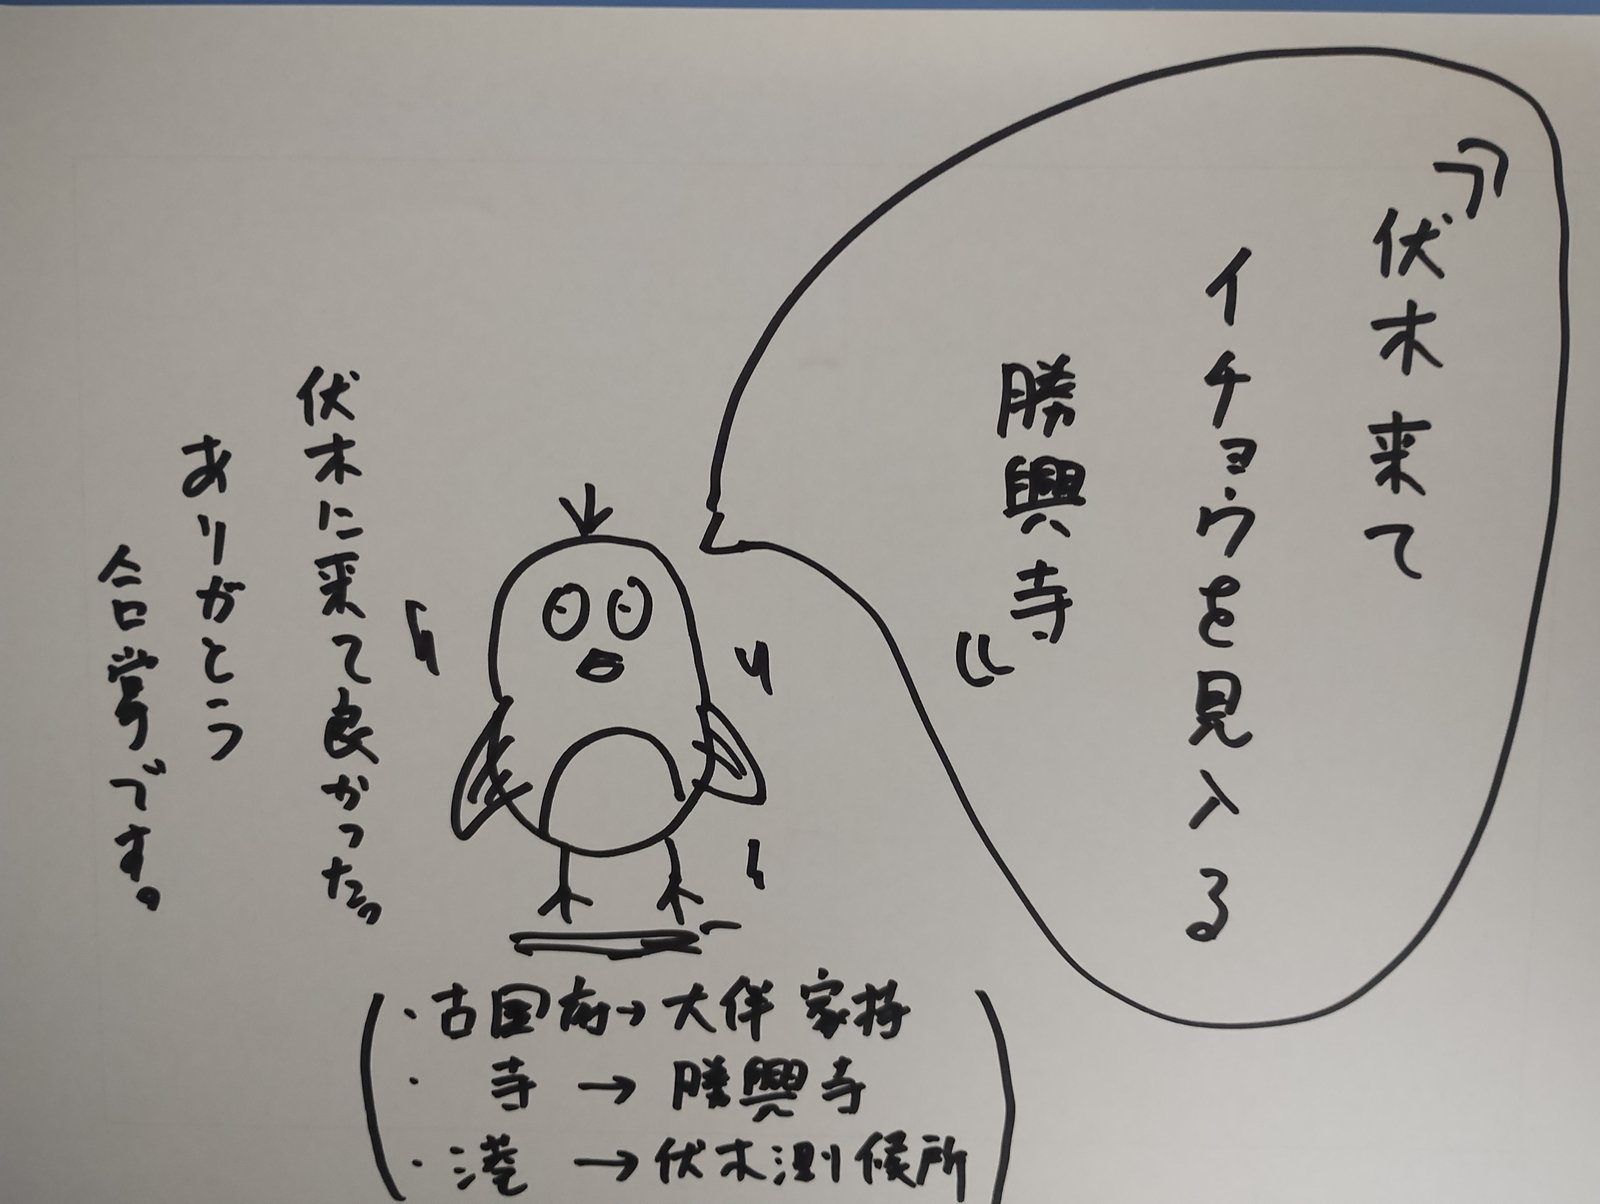 『伏木来て
イチョウを見入る
勝興寺』
伏木に来て良かった。
ありがとう
合掌です。
・古国府→大伴家持
・寺→勝興寺
・港→伏木測候所